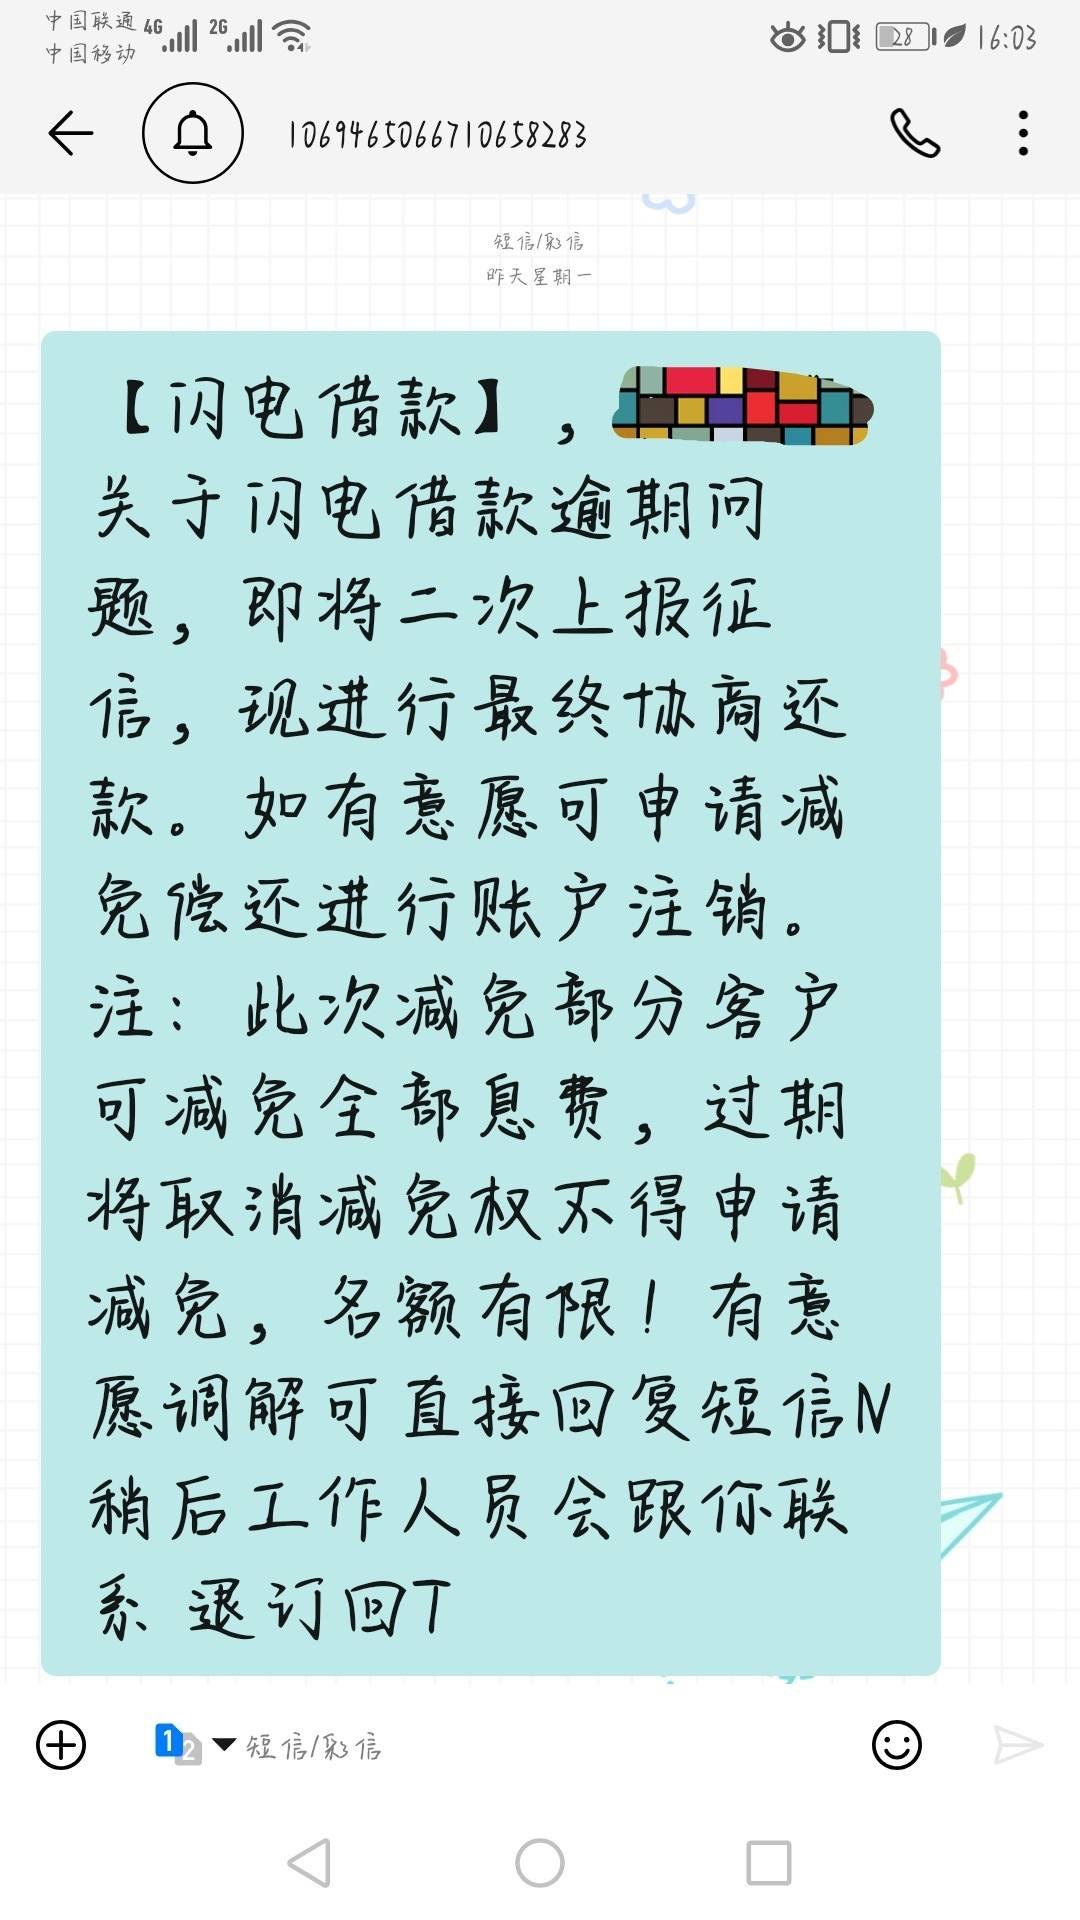 中国联通 4G 2G
中国移动
28 16:03
1069465066710658283
短信/彩信
昨天星期一
【闪电借款】，
关于闪电借款逾期问
题，即将二次上报征
信，现进行最终协商还
款。如有意愿可申请减
免偿还进行账户注销。
注：此次减免部分客户
可减免全部息费，过期
将取消减免权不得申请
减免，名额有限！有意
愿调解可直接回复短信N
稍后工作人员会跟你联
系 退订回T
1 2 短信/彩信